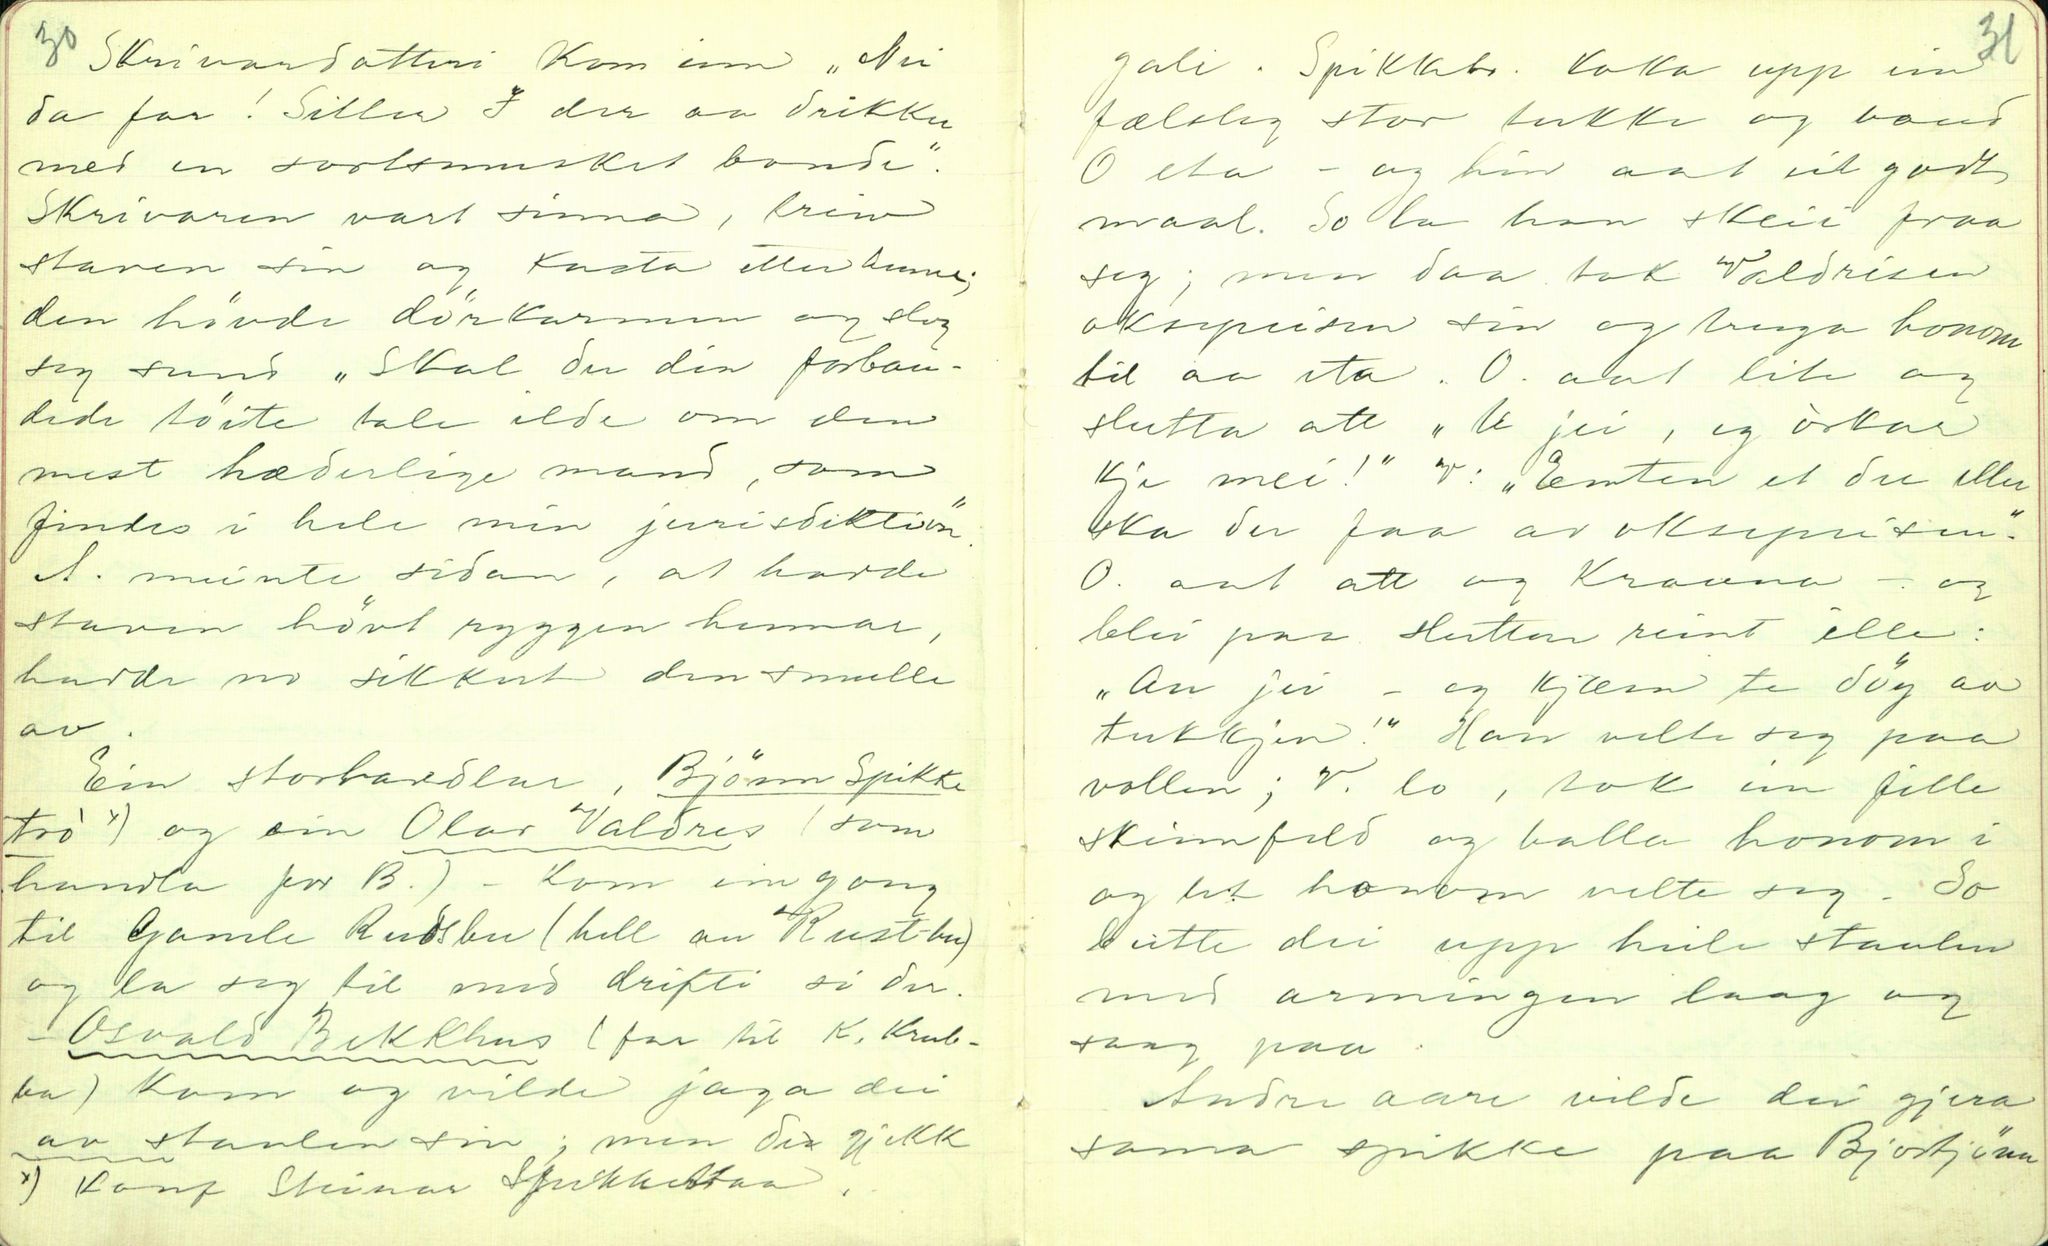 30
Skrivardotteri kom inn „Nei
da far! Sitter I der aa drikker
med en sortsmusket bonde".
Skrivaren vart sinna, treiv
staven sin og kasta etter henne;
den hövde dörkarmen og slog
seg sund „Skal du din forban-
dede töite tale ilde om den
mest hæderlige mand, som
findes i hele min jurisdiktiön".
A. meinte sidan, at havde
staven hövt ryggen hennar,
hadde no sikkert den smulle
av.
Ein storhandlar, Björnn Spikke
trö x) og ein Olav Valdres (som
handla for B.) - kom ein gong
til Gamle Rudsbu (hell au Rust-bu)
og la seg til med drifti si der.
- Osvald Bekkhus (far til K. Krub-
ba) kom og vilde jaga dei
av staulen sin; men dei gjekk
x) Konf Steinar Spikkestaa.
31
gali. Spikkebr. koka upp ein
fælsleg stor tukke og baud
O eta - og hin aat eit godt
maal. So la han skeii fraa
seg; men daa tok Valdrisen
oksepeisen sin og truga honom
til aa eta. O. aat lite og
slutta att „U jei, eg örkar
kje mei!" V: „Enten et du eller
ska du faa av oksepeisen".
O. aat att og Kravna - og
blei paa slutten reint ille:
„Au jei - eg kjæm te döy av
tukkjen!" Han velte seg paa
vollen; V. lo, tok ein fille
skinnfeld og balla honom i
og let honom velte seg. So
leitte dei upp heile staulen
med armingen laag og
saag paa.
Andre aare vilde dei gjera
sama spikke paa Bjortjönn